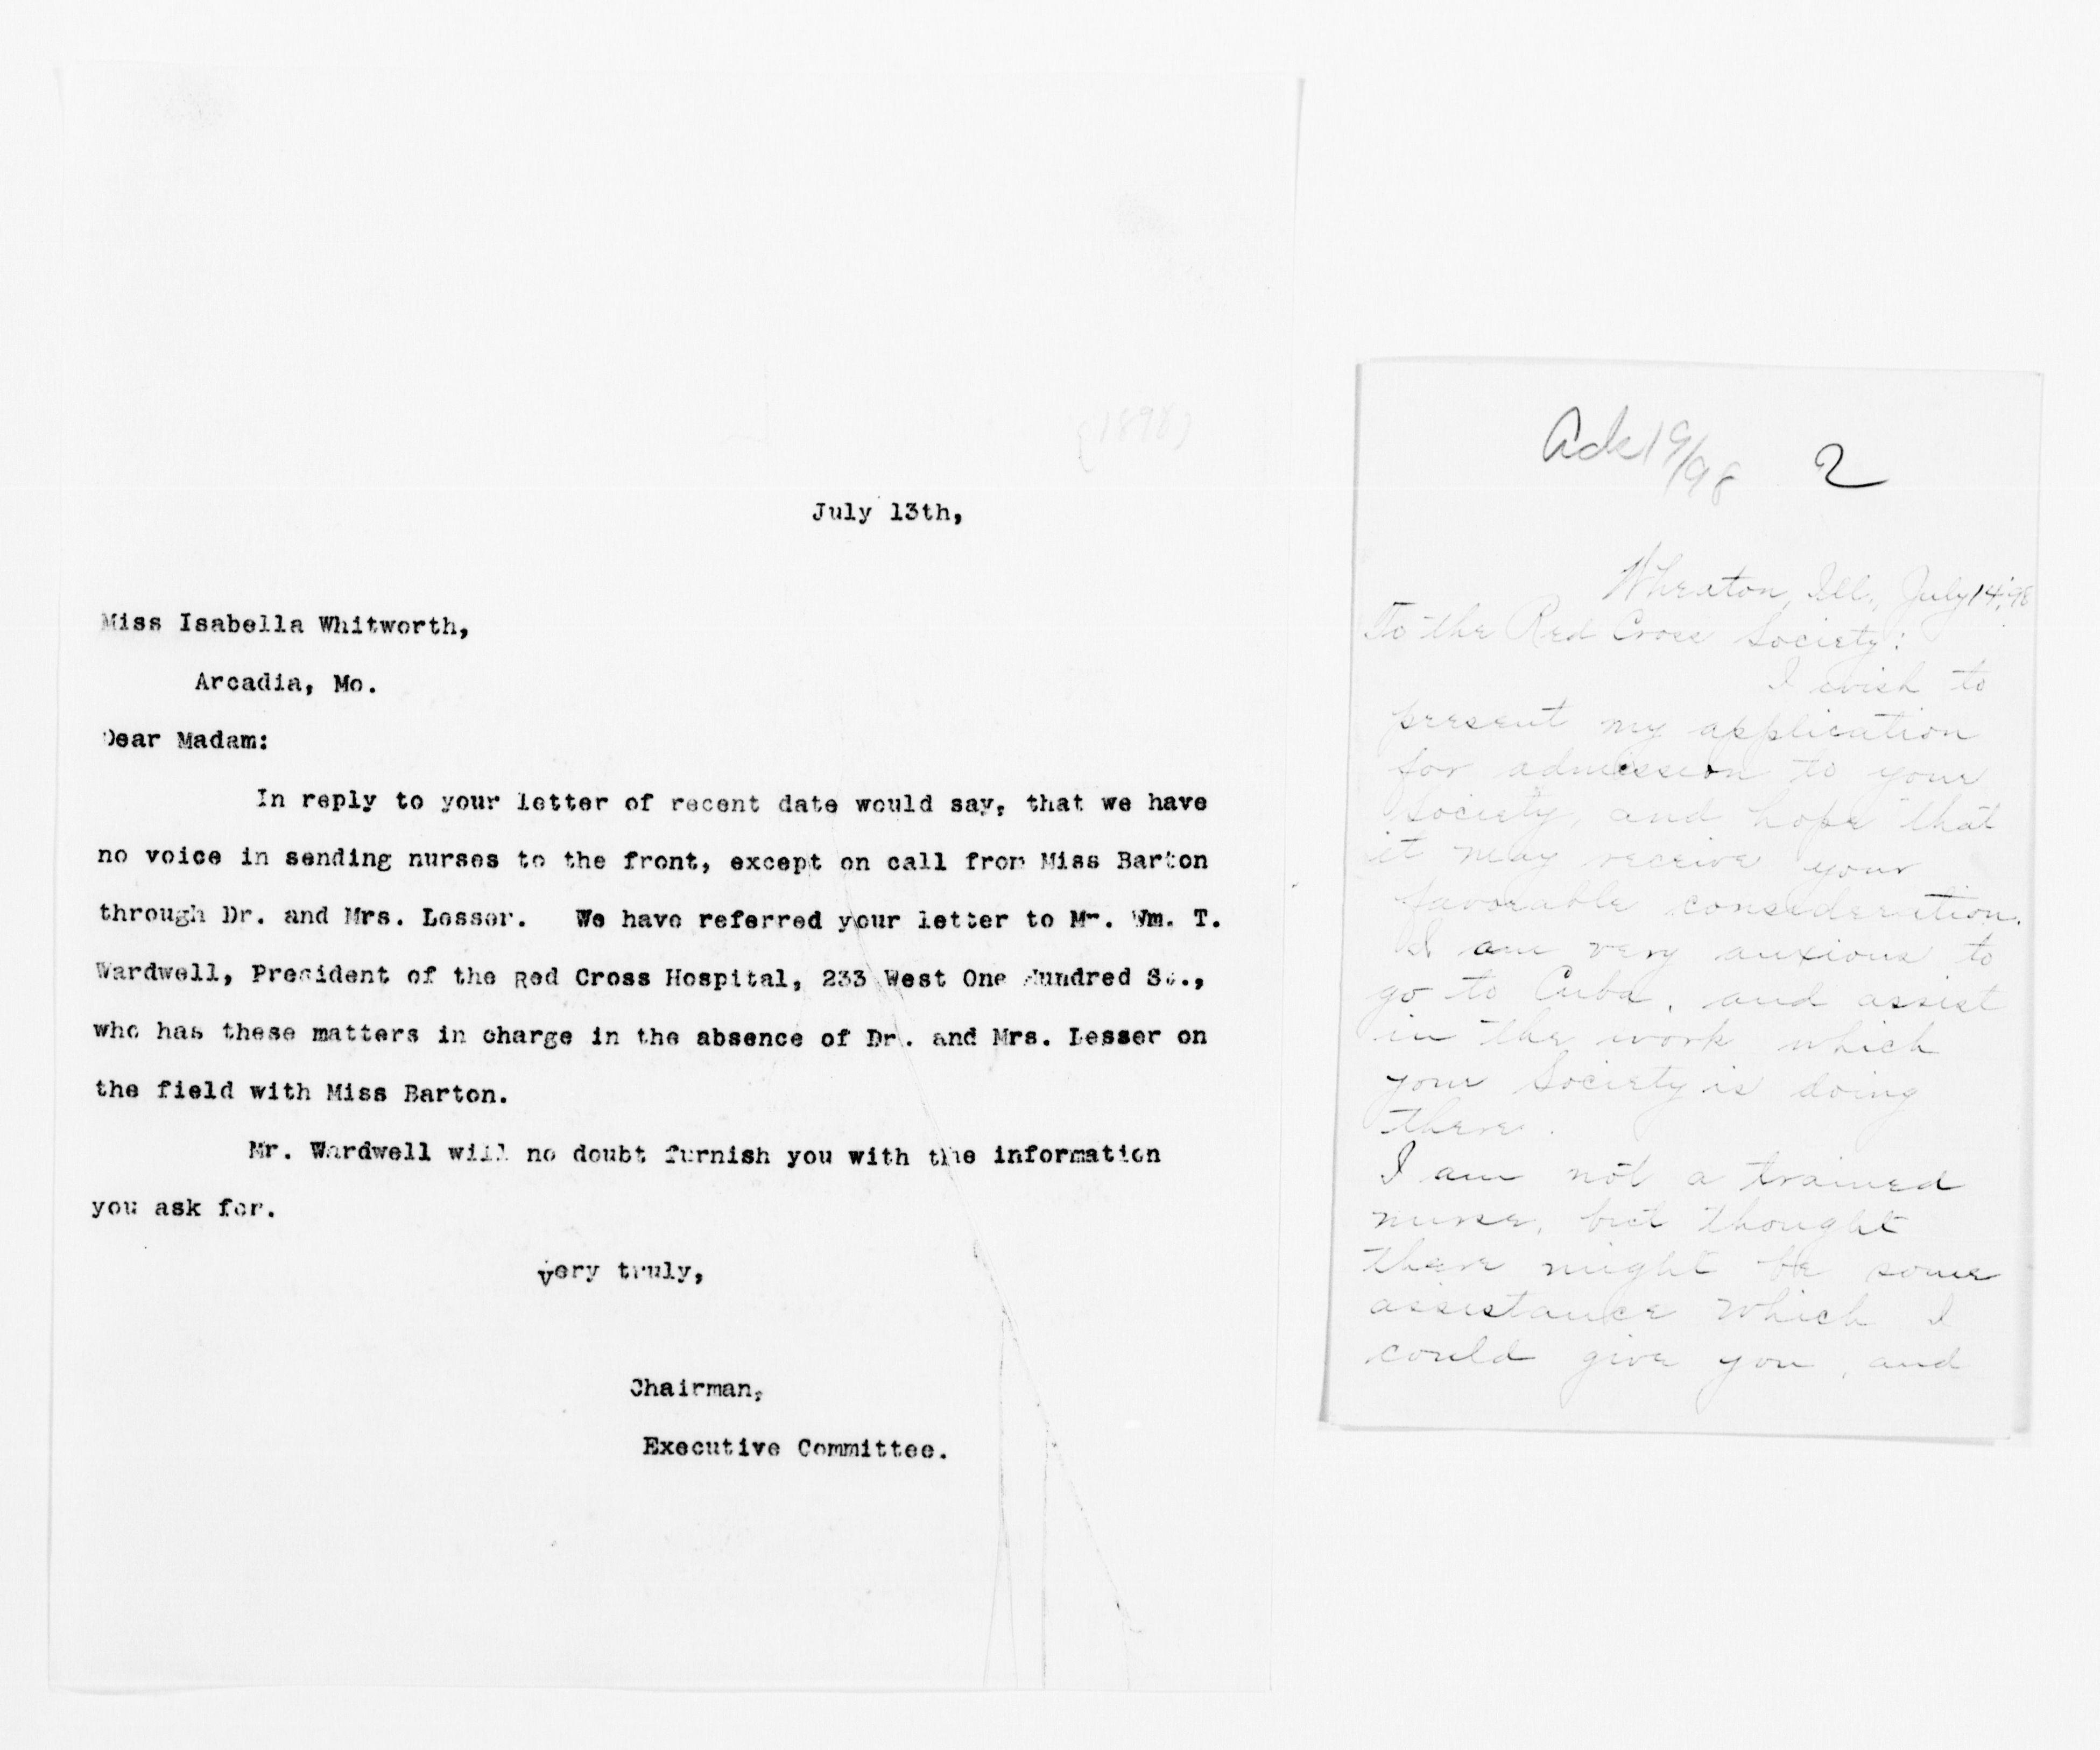 (1898)
July 13th,
Miss Isabella Whitworth,
Arcadia, Mo.
Dear Madam:
In reply to your letter of recent date would say, that we have
no voice in sending nurses to the front, except on call from Miss Barton
through Dr. and Mrs. Lesser. We have referred your letter to Mr. Wm. T.
Wardwell, President of the Red Cross Hospital, 233 West One Hundred St.,
who has these matters in charge in the absence of Dr. and Mrs. Lesser on
the field with Miss Barton.
Mr. Wardwell will no doubt furnish you with the information
you ask for.
Very truly,
Chairman,
Executive Committee.
Ack 19/98 2
Wheaton, Ill., July 14, '98
To the Red Cross Society:
I wish to
present my application
for admission to your
Society, and hope that
it may receive your
favorable consideration.
I am very anxious to
go to Cuba, and assist
in the work which
your Society is doing
there.
I am not a trained
nurse, but thought
there might be some
assistance which I
could give you, and